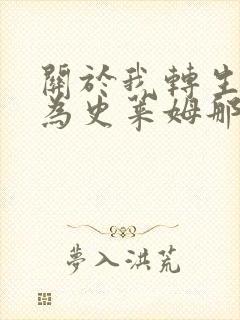 關於我轉生
為史萊姆那
夢入洪荒